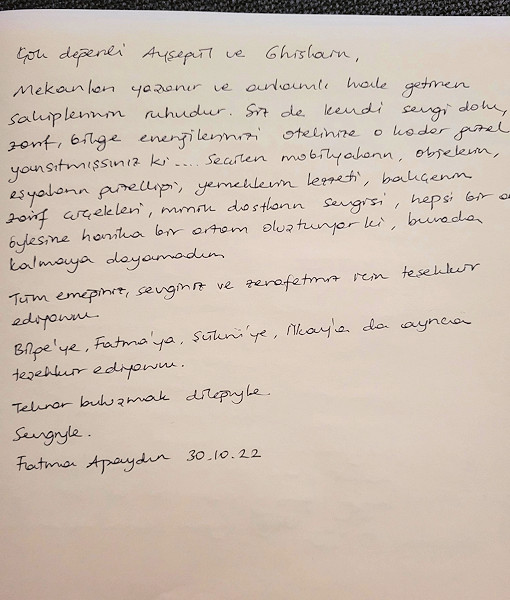 Çok değerli Ayşegül ve Ghislain,
Mekanları yaşanır ve anlamlı hale getiren
sahiplerinin ruhudur. Siz de kendi sevgi dolu,
zarif, bilge enerjilerinizi otelinize o kadar güzel
yansıtmışsınız ki .... Seçilen mobilyaların, objelerin,
eşyaların güzelliği, yemeklerin lezzeti, bahçenin
zarif çiçekleri, minik dostların sevgisi, hepsi bir a
öylesine harika bir ortam oluşturuyor ki, burada
kalmaya doyamadım
Tüm emeğiniz, sevginiz ve zerafetiniz için teşekkür
ediyorum.
Bilge'ye, Fatma'ya, Şükrü'ye, İlkay'a da ayrıca
teşekkür ediyorum.
Tekrar buluşmak dileğiyle.
Sevgiyle.
Fatma Apaydın 30.10.22